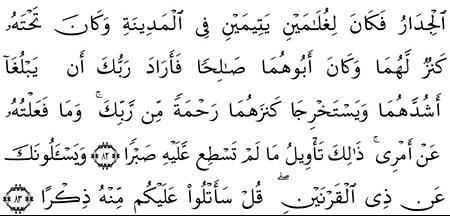 ٱلْجِدَارُ فَكَانَ لِغُلَـٰمَيْنِ يَتِيمَيْنِ فِى ٱلْمَدِينَةِ وَكَانَ تَحْتَهُۥ
كَنزٌ لَّهُمَا وَكَانَ أَبُوهُمَا صَـٰلِحًا فَأَرَادَ رَبُّكَ أَن يَبْلُغَآ
أَشُدَّهُمَا وَيَسْتَخْرِجَا كَنزَهُمَا رَحْمَةً مِّن رَّبِّكَ ۚ وَمَا فَعَلْتُهُۥ
عَنْ أَمْرِى ۚ ذَٰلِكَ تَأْوِيلُ مَا لَمْ تَسْطِع عَّلَيْهِ صَبْرًا ﴿٨٢﴾ وَيَسْـَٔلُونَكَ
عَن ذِى ٱلْقَرْنَيْنِ ۖ قُلْ سَأَتْلُوا۟ عَلَيْكُم مِّنْهُ ذِكْرًا ﴿٨٣﴾